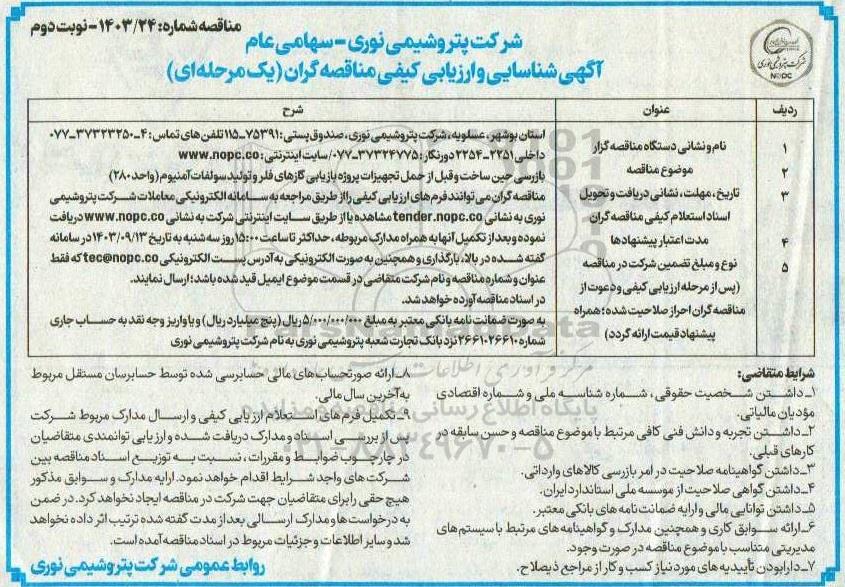 مناقصه شماره: ۱۴۰۳/۲۴- نوبت دوم
شرکت پتروشیمی نوری - سهامی عام
آگهی شناسایی و ارزیابی کیفی مناقصه گران (یک مرحله ای)
شرکت پتروشیمی نوری
NOPC
ردیف عنوان شرح
۱ نام و نشانی دستگاه مناقصه گزار
استان بوشهر، عسلویه، شرکت پتروشیمی نوری، صندوق پستی: ۷۵۳۹۱-۱۱۵ تلفن های تماس: ۴-۳۷۳۲۳۲۵۰-۰۷۷
داخلی ۲۲۵۱-۲۲۵۴ دورنگار: ۳۷۳۲۴۷۷۵-۰۷۷/ سایت اینترنتی: www.nopc.co
۲ موضوع مناقصه
بازرسی حین ساخت و قبل از حمل تجهیزات پروژه بازیابی گازهای فلر و تولید سولفات آمنیوم (واحد ۲۸۰)
۳ تاریخ، مهلت، نشانی دریافت و تحویل
اسناد استعلام کیفی مناقصه گران
مناقصه گران می توانند فرم های ارزیابی کیفی را از طریق مراجعه به سامانه الکترونیکی معاملات شرکت پتروشیمی
نوری به نشانی tender.nopc.co مشاهده یا از طریق سایت اینترنتی شرکت به نشانی www.nopc.co دریافت
نموده و بعد از تکمیل آنها به همراه مدارک مربوطه، حداکثر تا ساعت ۱۵:۰۰ روز سه شنبه به تاریخ ۱۴۰۳/۰۹/۱۳ در سامانه
گفته شده در بالا، بارگذاری و همچنین به صورت الکترونیکی به آدرس پست الکترونیکی tec@nopc.co که فقط
عنوان و شماره مناقصه و نام شرکت متقاضی در قسمت موضوع ایمیل قید شده باشد؛ ارسال نمایند.
۴ مدت اعتبار پیشنهادها
در اسناد مناقصه آورده خواهد شد.
۵ نوع و مبلغ تضمین شرکت در مناقصه
(پس از مرحله ارزیابی کیفی و دعوت از
مناقصه گران احراز صلاحیت شده؛ همراه
پیشنهاد قیمت ارائه گردد)
به صورت ضمانت نامه بانکی معتبر به مبلغ ۵/۰۰۰/۰۰۰/۰۰۰ ریال (پنج میلیارد ریال) و یا واریز وجه نقد به حساب جاری
شماره ۲۶۶۱۰۲۶۶۱۰ نزد بانک تجارت شعبه پتروشیمی نوری به نام شرکت پتروشیمی نوری
شرایط متقاضی:
۱-داشتن شخصیت حقوقی، شماره شناسه ملی و شماره اقتصادی
مؤدیان مالیاتی.
۲-داشتن تجربه و دانش فنی کافی مرتبط با موضوع مناقصه و حسن سابقه در
کارهای قبلی.
۳-داشتن گواهینامه صلاحیت در امر بازرسی کالاهای وارداتی.
۴-داشتن گواهی صلاحیت از موسسه ملی استاندارد ایران.
۵-داشتن توانایی مالی و ارایه ضمانت نامه های بانکی معتبر.
۶-ارائه سوابق کاری و همچنین مدارک و گواهینامه های مرتبط با سیستم های
مدیریتی متناسب با موضوع مناقصه در صورت وجود.
۷-دارا بودن تأییدیه های مورد نیاز کسب و کار از مراجع ذیصلاح.
۸-ارائه صورتحساب های مالی حسابرسی شده توسط حسابرسان مستقل مربوط
به آخرین سال مالی.
۹-تکمیل فرم های استعلام ارزیابی کیفی و ارسال مدارک مربوط شرکت
پس از بررسی اسناد و مدارک دریافت شده و ارزیابی توانمندی متقاضیان
در چارچوب ضوابط و مقررات، نسبت به توزیع اسناد مناقصه بین
شرکت های واجد شرایط اقدام خواهد نمود. ارایه مدارک و سوابق مذکور
هیچ حقی را برای متقاضیان جهت شرکت در مناقصه ایجاد نخواهد کرد. در ضمن
به درخواست ها و مدارک ارسالی بعد از مدت گفته شده ترتیب اثر داده نخواهد
شد و سایر اطلاعات و جزئیات مربوط در اسناد مناقصه آمده است.
روابط عمومی شرکت پتروشیمی نوری